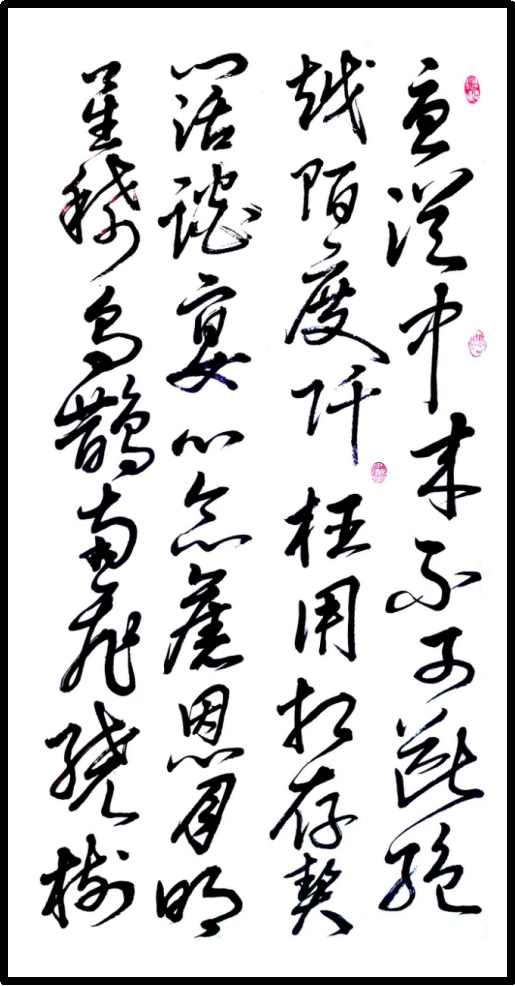 憂從中來不可斷絕
越陌度阡枉用相存契
闊談宴心念舊恩月明
星稀烏鵲南飛繞樹